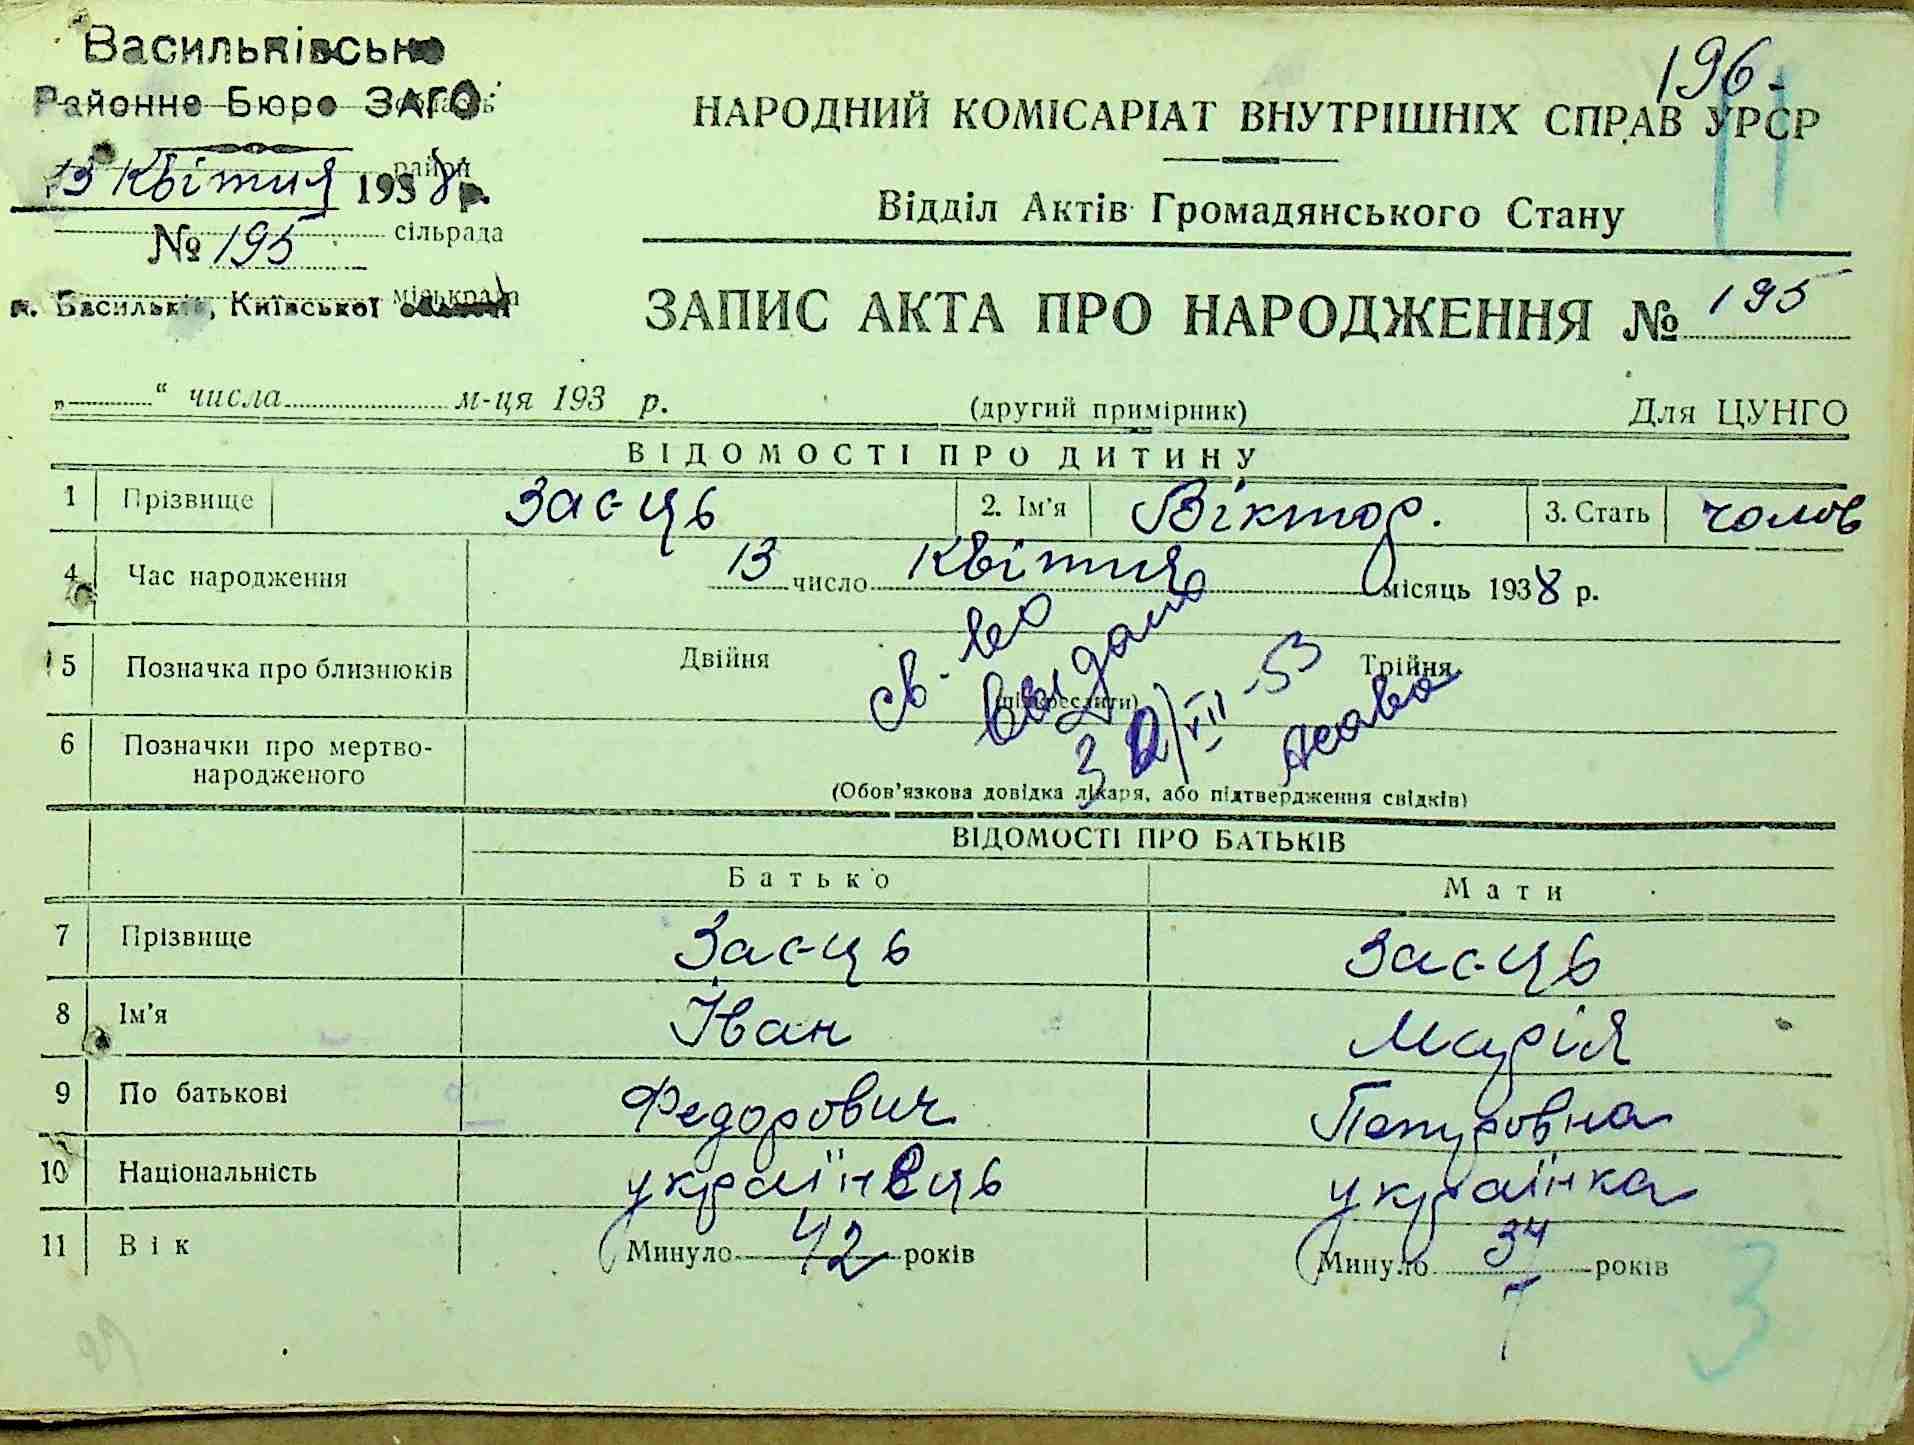 196.
Васильківське
Районне Бюро ЗАГС
13 Квітня 1938 р.
район
№ 195
сільрада
м. Васильків, Київської
міськрада
НАРОДНИЙ КОМІСАРІАТ ВНУТРІШНІХ СПРАВ УРСР
Відділ Актів Громадянського Стану
ЗАПИС АКТА ПРО НАРОДЖЕННЯ № 195
„ “ числа м-ця 193 р. (другий примірник) Для ЦУНГО
ВІДОМОСТІ ПРО ДИТИНУ
1 Прізвище Заєць 2. Ім'я Віктор. 3. Стать чолов
4 Час народження 13 число Квітня місяць 1938 р.
5 Позначка про близнюків Двійня Трійня
(підкреслити)
св-во
выдано
30/VII-53
6 Позначки про мертво-
народженого
(Обов'язкова довідка лікаря, або підтвердження свідків)
ВІДОМОСТІ ПРО БАТЬКІВ
Батько Мати
7 Прізвище Заєць Заєць
8 Ім'я Іван Марія
9 По батькові Федорович Петровна
10 Національність українець українка
11 Вік Минуло 42 років Минуло 34 років
3